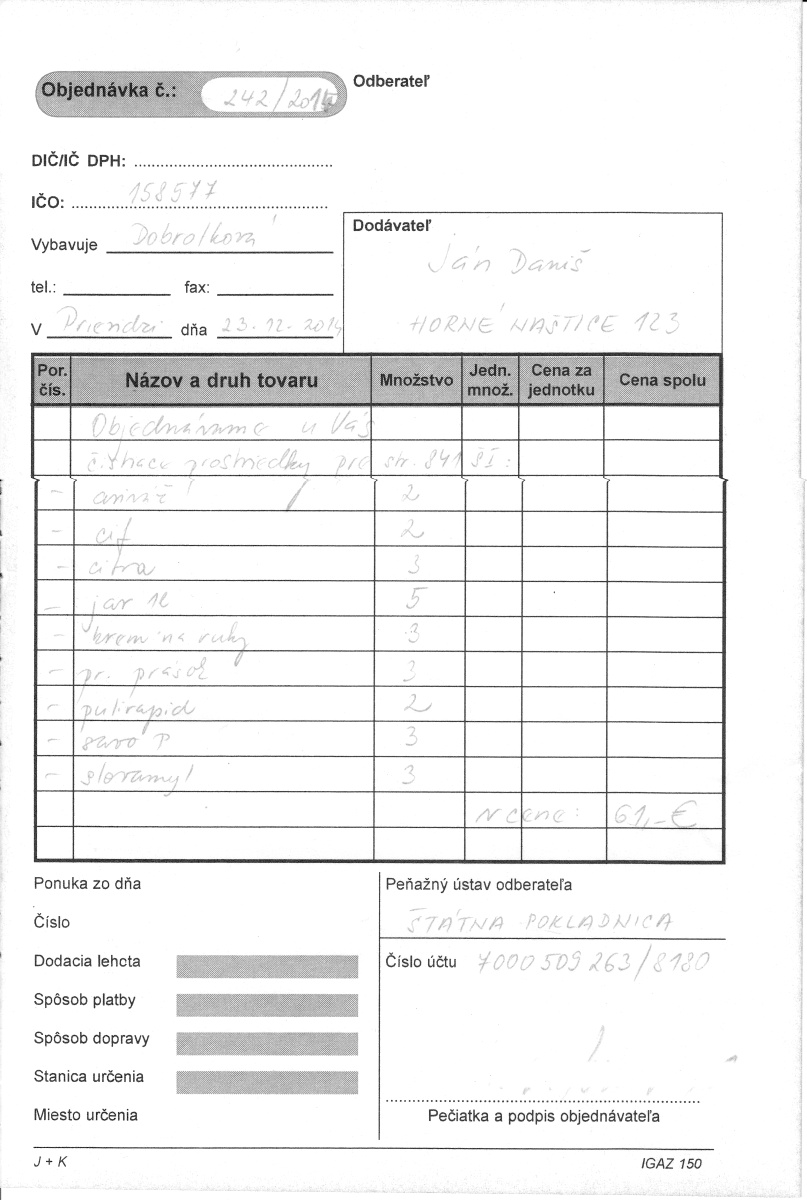 Objednávka č.: 242/2014
Odberateľ
DIČ/IČ DPH:
IČO: 158577
Vybavuje Dobrotková
tel.: fax:
V Prievidzi dňa 23.12.2014
Dodávateľ
Ján Daniš
HORNÉ NAŠTICE 123
Por. čís. Názov a druh tovaru Množstvo Jedn. množ. Cena za jednotku Cena spolu
Objednávame u Vás
čistiace prostriedky pre str. 841 ŠI:
- 2
- cif 2
- citra 3
- jar 1l 5
- krem na ruky 3
- pr. prášok 3
- pulirapid 2
- savo P 3
- slovamyl 3
V cene: 61,-€
Ponuka zo dňa
Číslo
Dodacia lehota
Spôsob platby
Spôsob dopravy
Stanica určenia
Miesto určenia
Peňažný ústav odberateľa
ŠTÁTNA POKLADNICA
Číslo účtu 7000509263/8180
Pečiatka a podpis objednávateľa
J + K
IGAZ 150